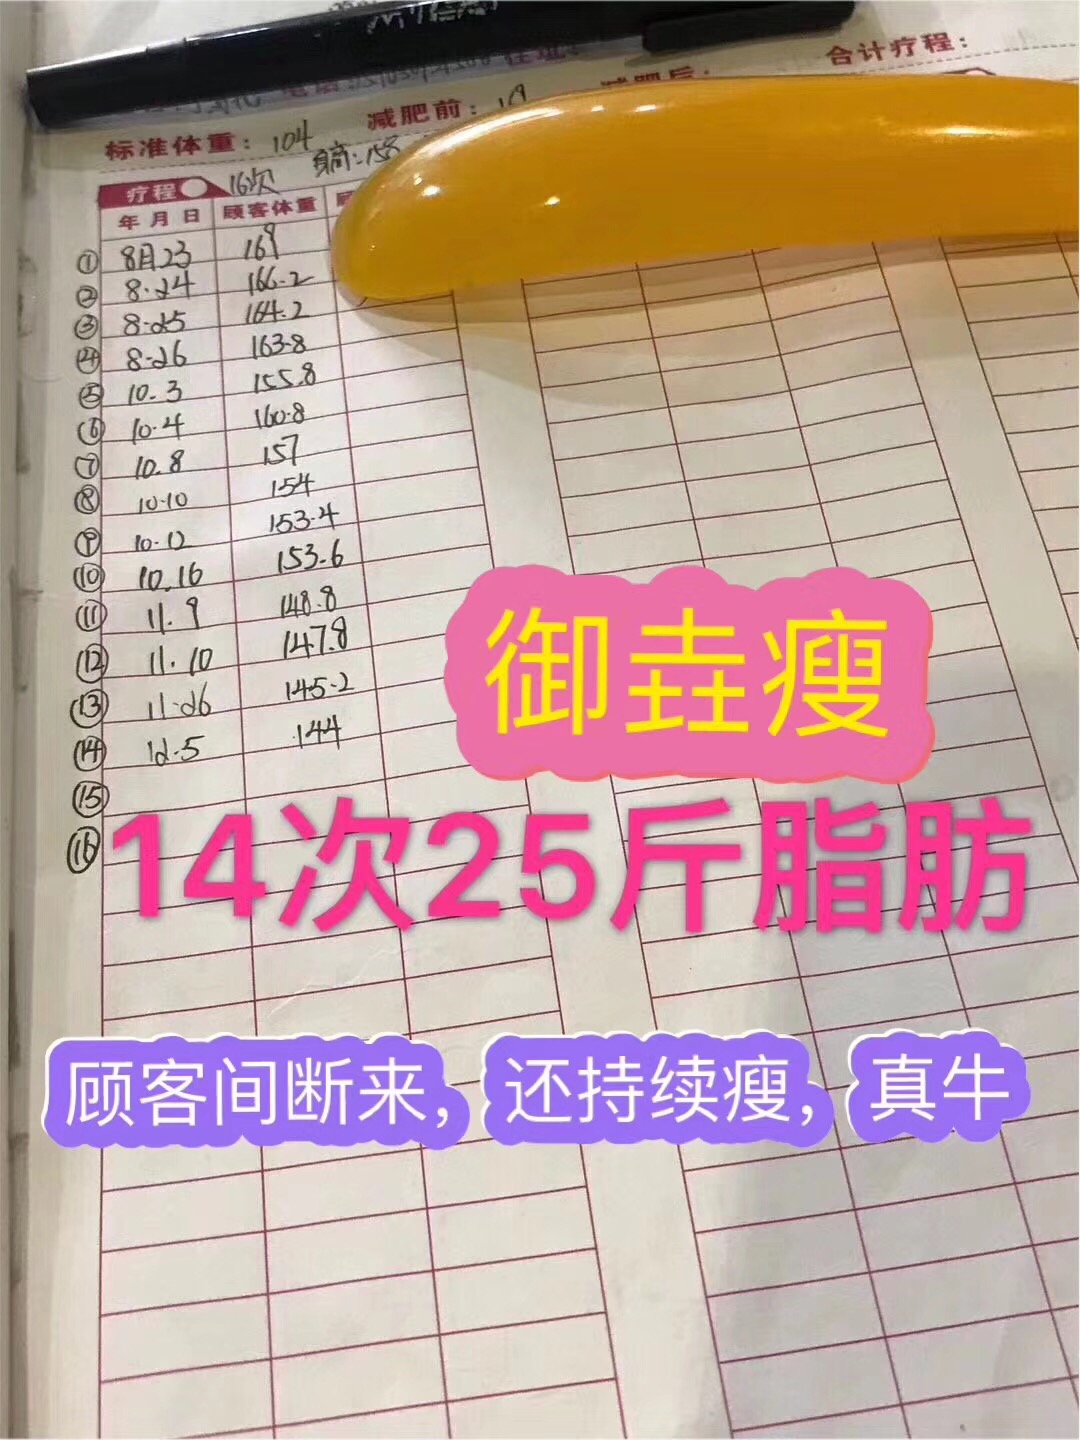 合计疗程：
减肥前：
减肥后：
标准体重：104
身高：158
疗程 16次
年月日 顾客体重
① 8月23 169
② 8.24 166.2
③ 8.25 164.2
④ 8.26 163.8
⑤ 10.3 155.8
⑥ 10.4 160.8
⑦ 10.8 157
⑧ 10.10 154
⑨ 10.12 153.4
⑩ 10.16 153.6
⑪ 11.9 148.8
⑫ 11.10 147.8
⑬ 11.26 145.2
⑭ 12.5 144
⑮
⑯
御垚瘦
14次25斤脂肪
顾客间断来，还持续瘦，真牛